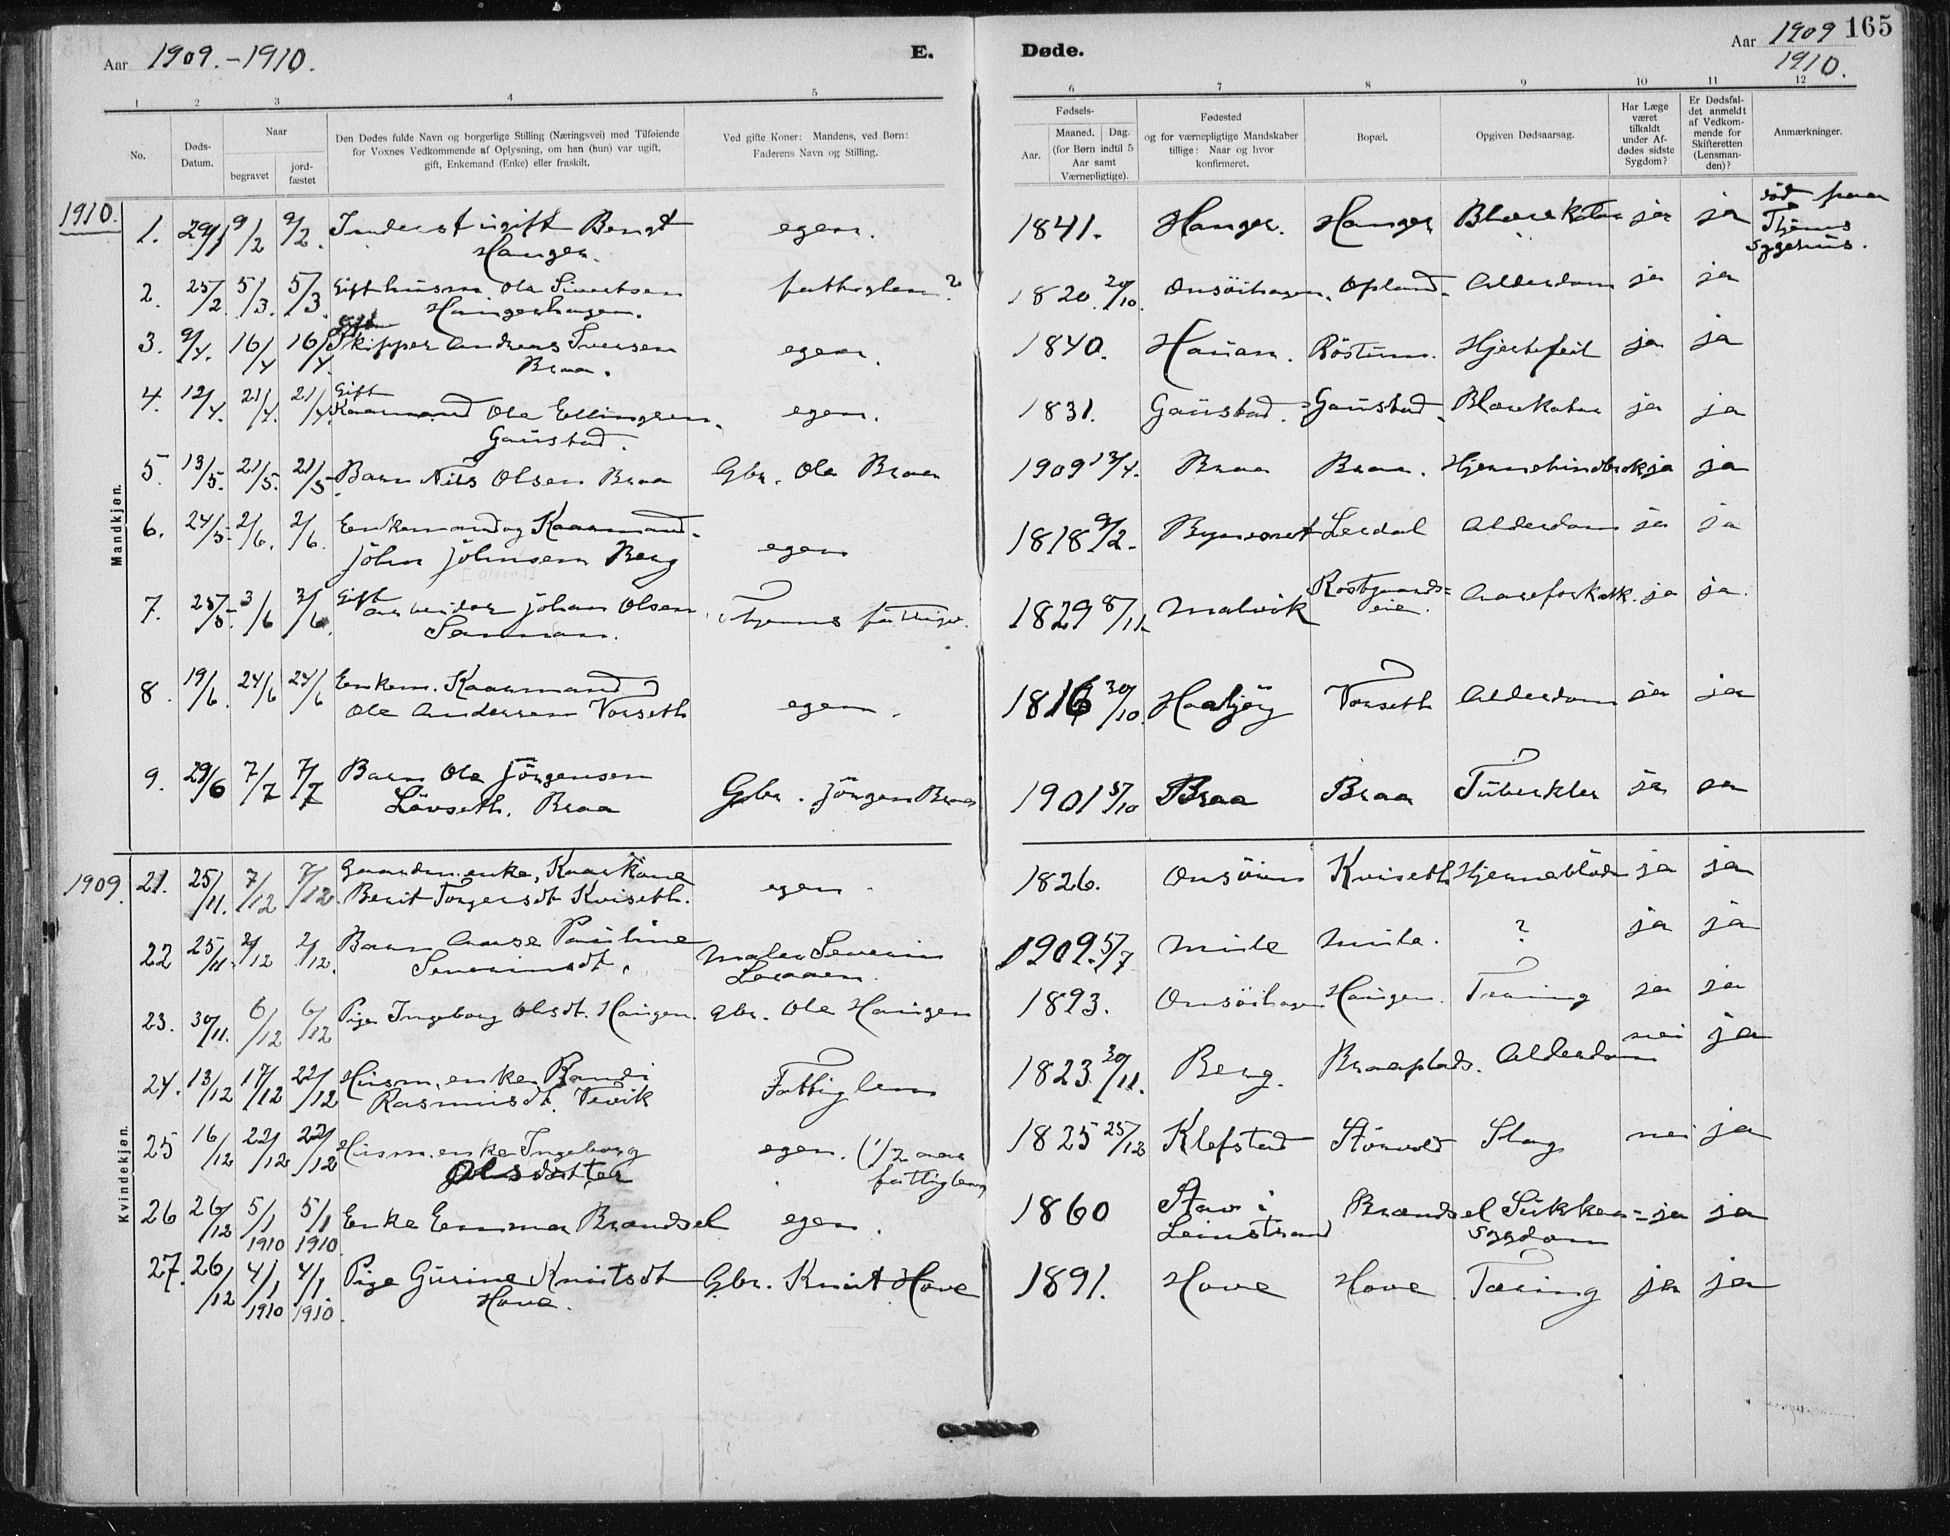 Aar 1909.-1910. E. Døde. Aar 1909 165
1910.
1 2 3 4 5 6 7 8 9 10 11 12
No.
Døds-Datum.
Naar
begravet
jord-fæstet
Den Dødes fulde Navn og borgerlige Stilling (Næringsvei) med Tilføiende
for Voxnes Vedkommende af Oplysning, om han (hun) var ugift,
gift, Enkemand (Enke) eller fraskilt.
Ved gifte Koner: Mandens, ved Børn:
Faderens Navn og Stilling.
Fødsels-
Aar.
Maaned. Dag.
(for Børn indtil 5
Aar samt
Værnepligtige).
Fødested
og for værnepligtige Mandskaber
tillige: Naar og hvor
konfirmeret.
Bopæl.
Opgiven Dødsaarsag.
Har Læge
været
tilkaldt
under Af-
dødes sidste
Sygdom?
Er Dødsfal-
det anmeldt
af Vedkom-
mende for
Skifteretten
(Lensman-
den)?
Anmærkninger.
Mandkjøn.
1910.
1. 29/1 9/2 9/2. Inderst ugift Bengt egen. 1841. Hangen. Hangen Blærekatar ja ja død paa
Hangen. Thjems
Sygehus.
2. 25/2 5/3. 5/3. Gift husm. Ole Sivertsen fattiglem? 1820 20/10. Onsöihagen. Opland. Alderdom ja ja
Haugenhagen.
3. 9/4. 16/4 16/4 Skipper Andreas Iversen egen. 1840. Hauan. Röstum. Hjertefeil ja ja
Braa.
4. 12/4. 21/4. 21/4. Gift
Kaarmand Ole Ellingsen egen. 1831. Gaustad. Gaustad. Blærekatar ja ja
Gaustad.
5. 13/5. 21/5. 21/5. Barn Nils Olsen Braa Gbr. Ole Braa 1909 13/4. Braa Braa. Hjernehindebetk ja ja
6. 24/5. 2/6. 2/6. Enkemand og Kaarmand. 1818 9/2. Byneset Lerdal Alderdom ja ja
John Johnsen Berg egen
[Olsen]
7. 25/5. 3/6 3/6. Gift
arbeider Johan Olsen Thjems fattigv. 1829 8/11. Malvik Rostgaards=
eie. Aareforkalk. ja ja.
8. 19/6. 24/6 24/6 Enkem. Kaarmand 1816 30/10. Haabjörg Vorseth Alderdom ja ja
Ole Andersen Vorseth egen.
9. 29/6 7/7 7/7 Barn Ole Jörgensen Gbr. Jörgen Braa 1901 5/10 Braa Braa Tuberkler ja ja
Lövseth. Braa
Kvindekjøn.
1909. 21. 25/11. 7/12 7/12 Gaardm. enke, Kaarkone egen. 1826. Onsöien Kviseth Hjerneblödn ja ja
Berit Torgersdt Kviseth.
22 25/11. 2/12 2/12. Barn Aase Pauline Maler Severin 1909. 5/7 Mule Mule. ? ja ja
Severinsdt.
23. 30/11. 6/12 6/12 Pige Ingeborg Olsdt. Haugen. Gbr. Ole Haugen 1893. Onsöihagen Haugen. Tæring ja ja
24. 13/12 17/12 22/12 Husm. enke Randi Fattiglem 1823. 30/11. Berg. Braaplads. Alderdom nei ja
Rasmusdt.
25 16/12 22/12 22/12 Husm. enke Ingeborg egen. (1/2 aar 1825 25/12 Klefstad Slag nei ja
Olsdatter fattiglem
26 26/12 5/1 1910 5/1 1910. Enke Emma Brandsel egen. 1860 Stav i Brandsel Sukker= ja ja
Leinstrand sygdom
27. 26/12 4/1 1910 4/1 1910. Pige Gurine Knutsdt Gbr. Knut Hove 1891. Hove Hove Tæring ja ja
Hove.